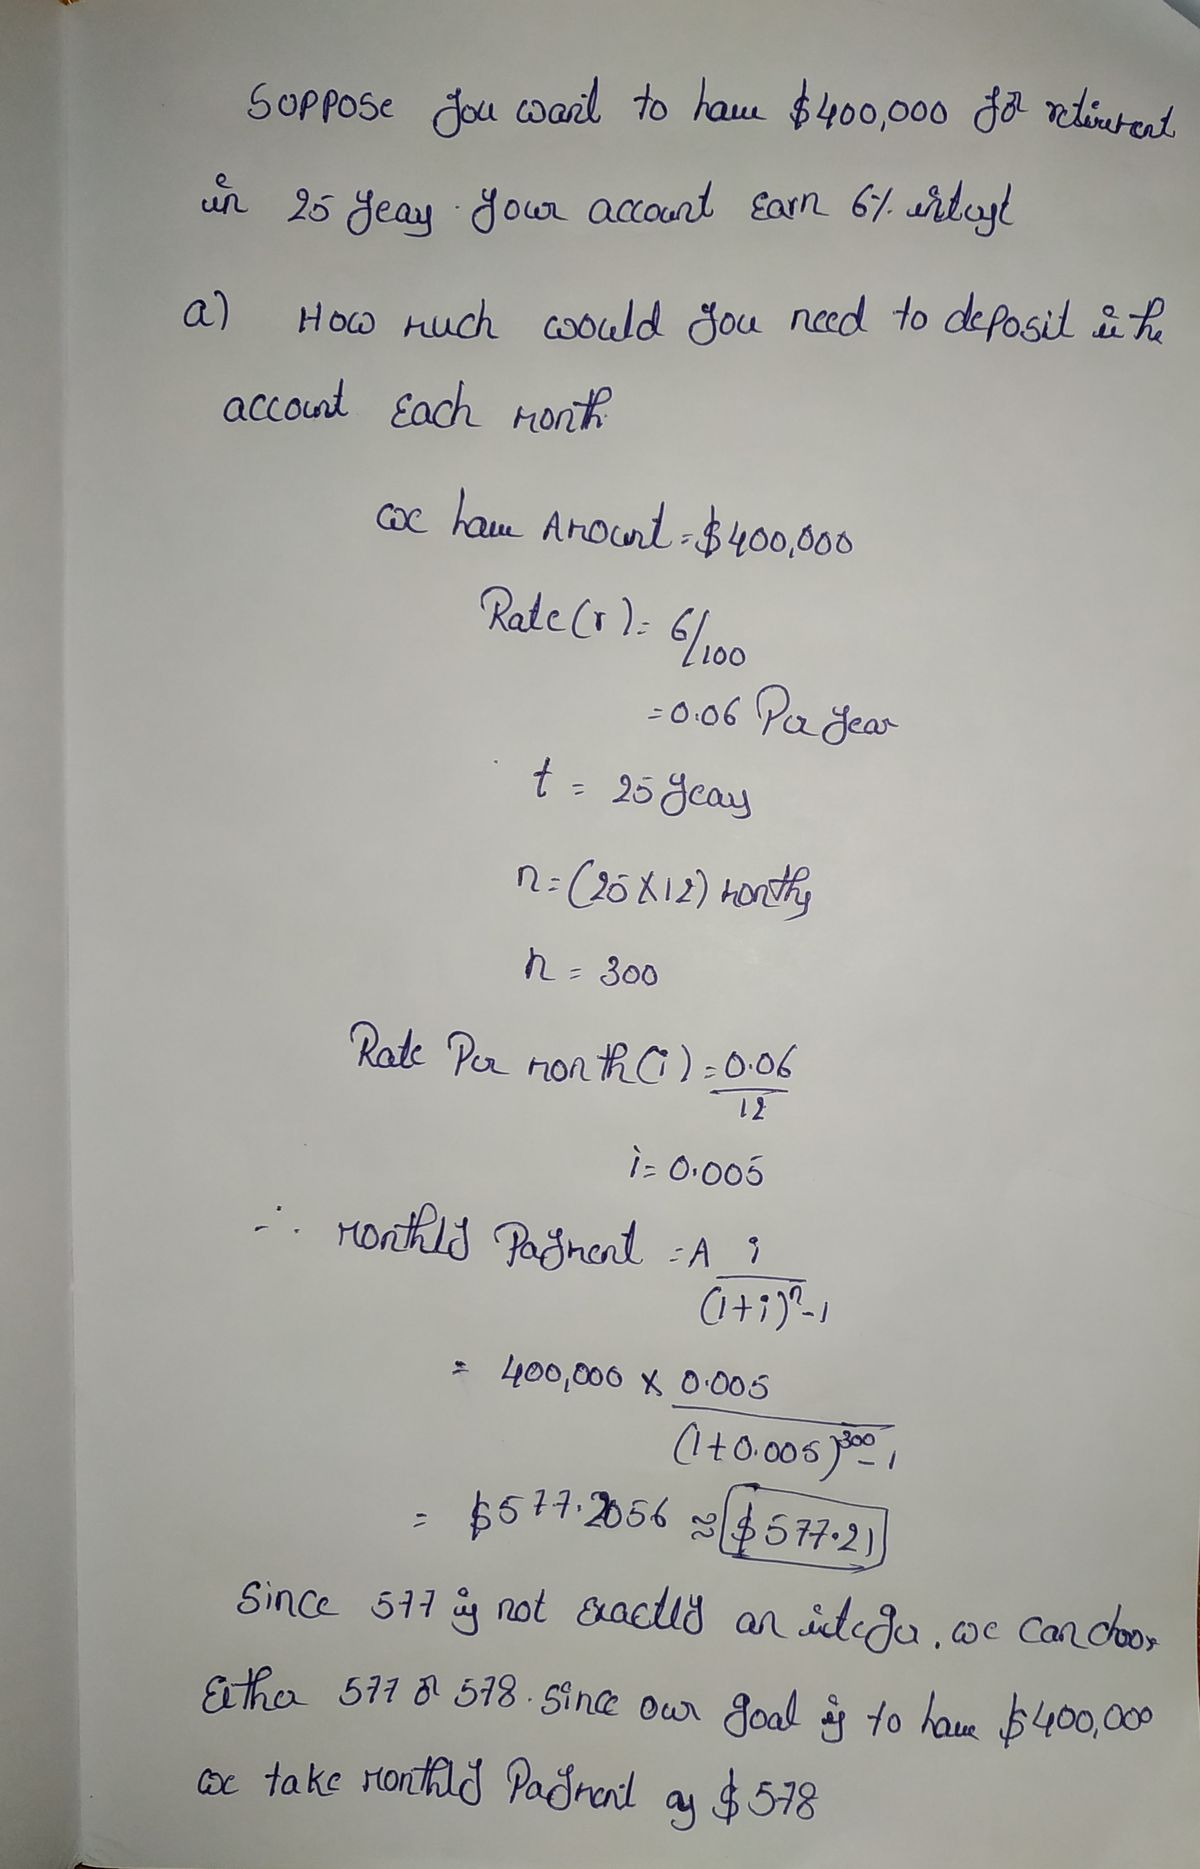 Suppose you want to have $400,000 for retirement
in 25 years. your account Earn 6% interest
a) How much would you need to deposit in the
account Each month
we have Amount = $400,000
Rate (r) = 6/100
= 0.06 Per year
t = 25 years
n = (25 × 12) months
n = 300
Rate Per month (i) = 0.06/12
i = 0.005
∴ monthly Payment = A i/((1+i)^n - 1)
= 400,000 × 0.005/((1+0.005)^300 - 1)
= $577.2056 ≈ $577.21
Since 577 is not Exactly an integer, we can choose
Either 577 or 578. Since our goal is to have $400,000
we take monthly Payment as $578